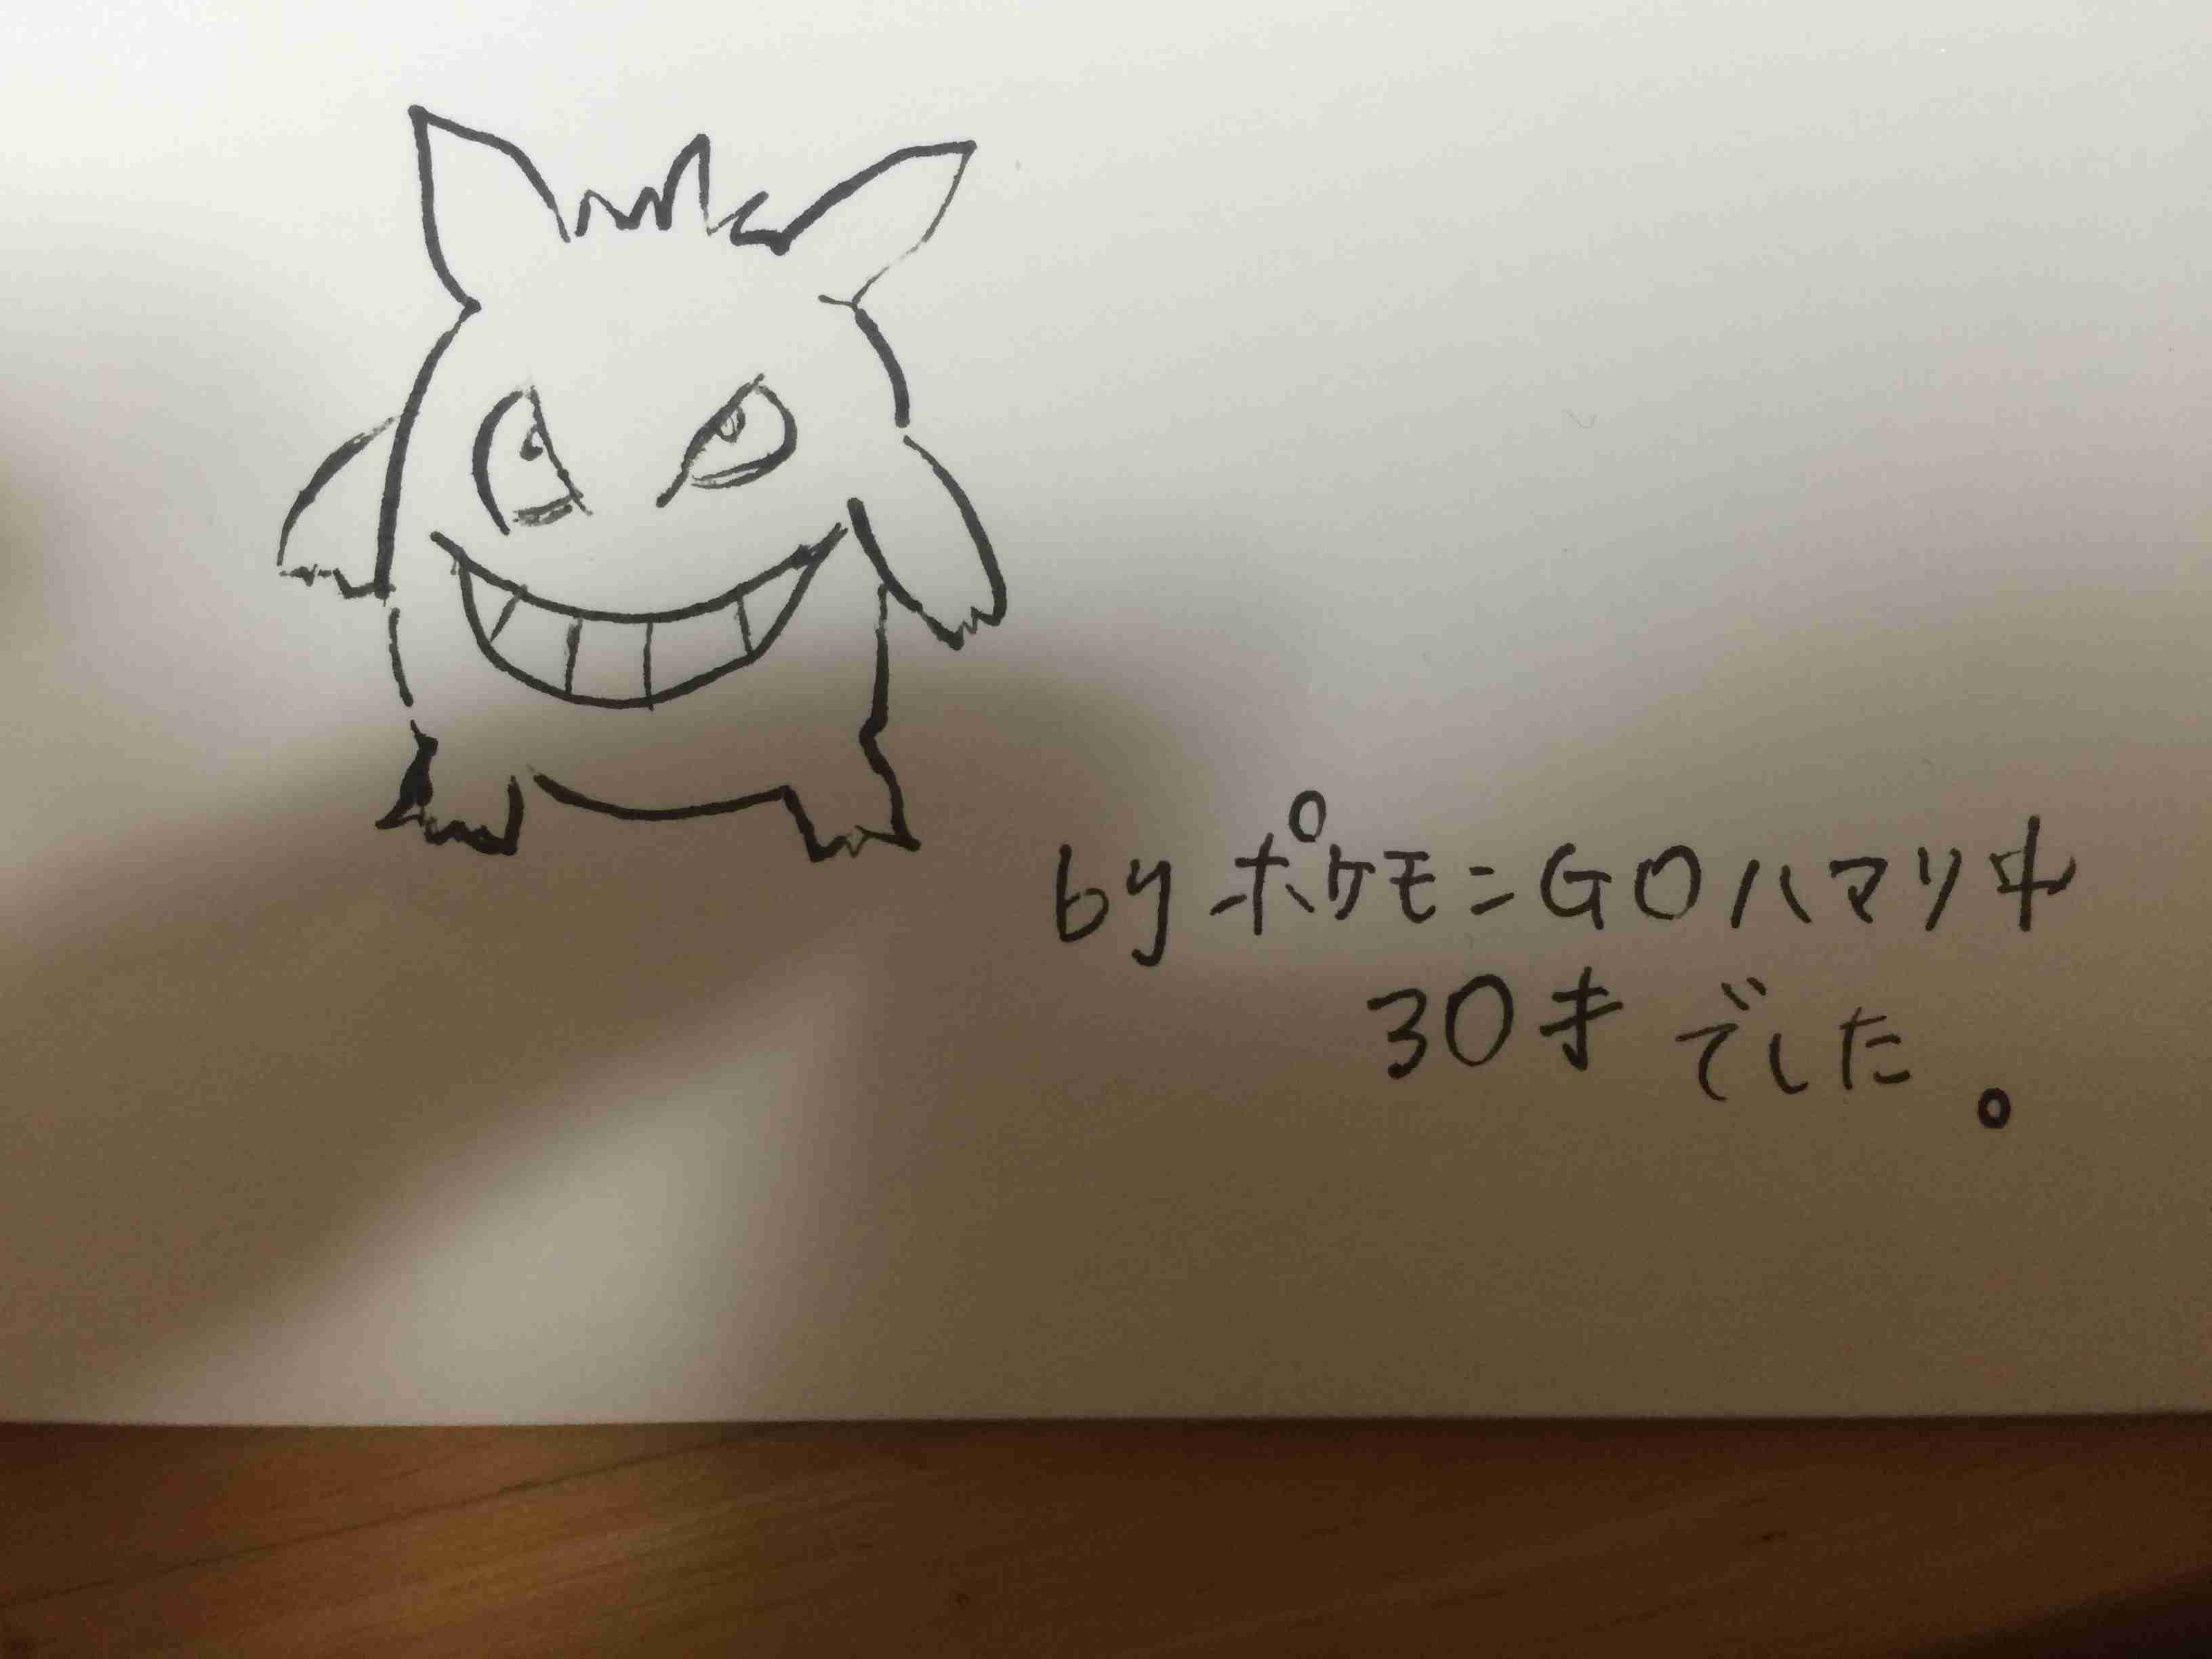 by ポケモンGOハマり中
30才でした。